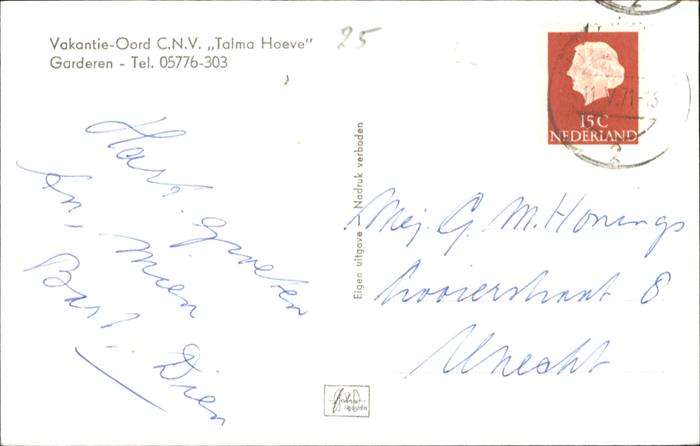 Vakantie-Oord C.N.V. „Talma Hoeve”
Garderen - Tel. 05776-303
25
Hart. Groeten
Mien
Bart. Dien
Eigen uitgave — Nadruk verboden
15 C
NEDERLAND
V.71
Mej. G. M. Honings
Looierstraat 8
Utrecht